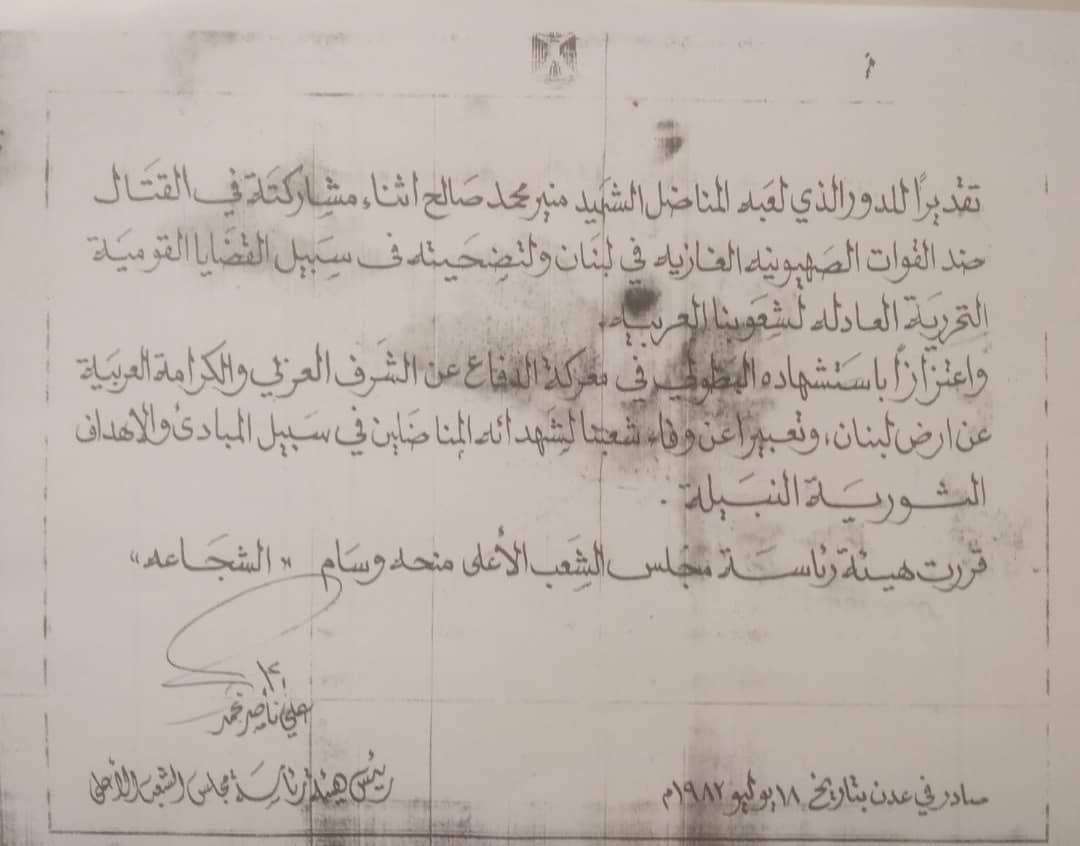 تقديرًا للدور الذي لعبه المناضل الشهيد منير محمد صالح اثناء مشاركتة في القتال
ضد القوات الصهيونيه الغازيه في لبنان ولتضحيته في سبيل القضايا القومية
التحررية العادله لشعوبنا العربيه.
واعتزازًا باستشهاده البطولي في معركة الدفاع عن الشرف العربي والكرامة العربية
عن ارض لبنان، وتعبيرا عن وفاء شعبنا لشهدائه المناضلين في سبيل المبادئ والاهداف
الثورية النبيلة .
قررت هيئة رئاسة مجلس الشعب الأعلى منحه وسام « الشجاعه »
علي ناصر محمد
رئيس هيئة رئاسة مجلس الشعب الأعلى
صادر في عدن بتاريخ ١٨ يوليو ١٩٨٢م